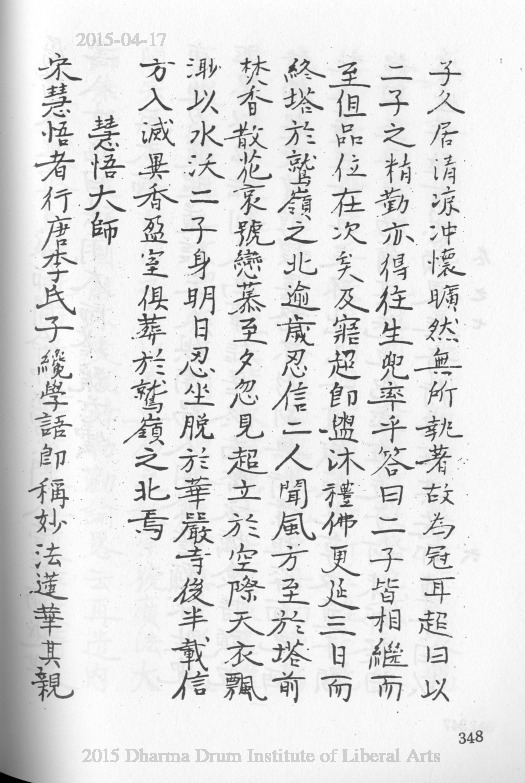 2015-04-17
子久居清涼冲懷曠然無所執著故為冠耳超曰以
二子之精勤亦得往生兜率乎答曰二子皆相繼而
至但品位在次矣及寤超即盥沐禮佛更延三日而
終塔於鷲嶺之北逾歲忍信二人聞風方至於塔前
焚香散花哀號戀慕至夕忽見超立於空際天衣飄
渺以水沃二子身明日忍坐脫於華嚴寺後半載信
方入滅異香盈室俱葬於鷲嶺之北焉
慧悟大師
宋慧悟者行唐李氏子纔學語即稱妙法蓮華其親
348
2015 Dharma Drum Institute of Liberal Arts